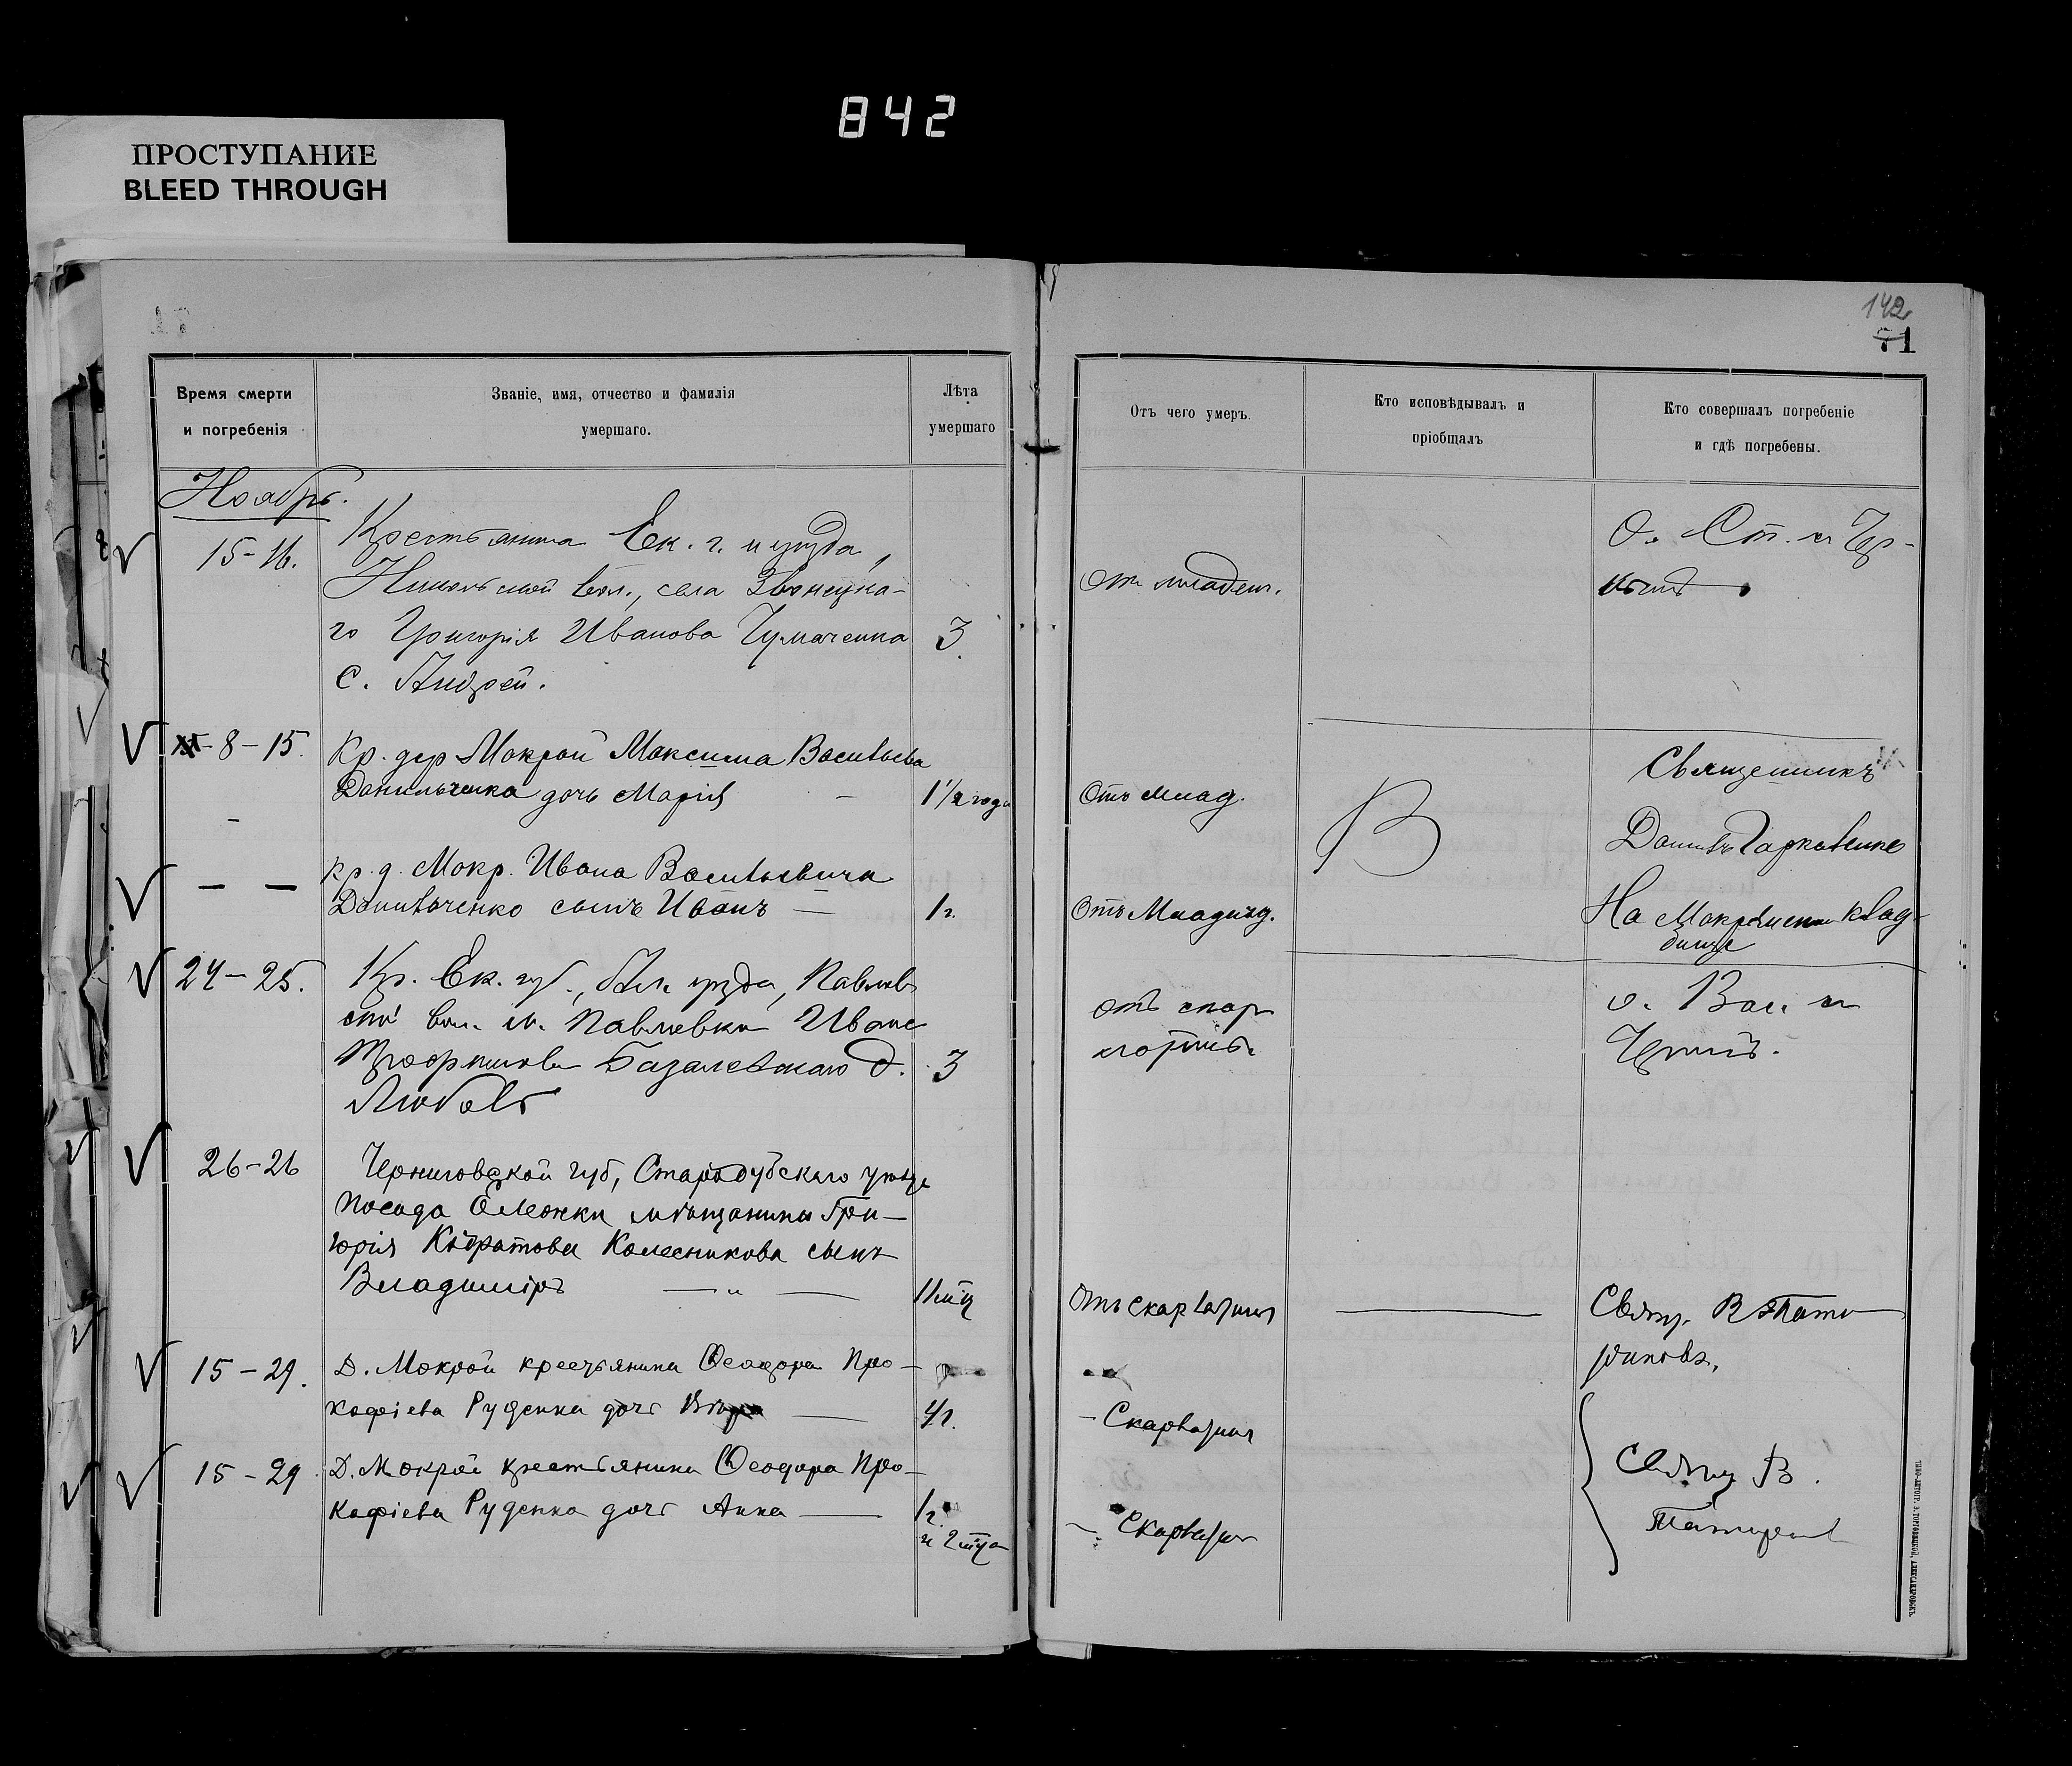 842
ПРОСТУПАНИЕ
BLEED THROUGH
142
71
Время смерти
и погребенія
Званіе, имя, отчество и фамилія
умершаго.
Лѣта
умершаго
Отъ чего умеръ.
Кто исповѣдывалъ и
пріобщалъ
Кто совершалъ погребеніе
и гдѣ погребены.
Ноябрь.
15-16.
Крестьянина Ек. г. и уѣзда,
вол., села Звонецка-
го Григорія Иванова Чумаченка
с. Андрей.
3.
От младен.
О. Ст.
8-15.
Кр. дер Мокрой Максима Васильева
Данильченка дочь Марія —
1 1/2 года
Отъ млад.
В
Священникъ
Даниилъ Гаркавенко
— —
кр. д. Мокр. Ивана Васильевича
Данильченко сынъ Иванъ —
1 г.
Отъ Младенч.
На клад-
бище
24-25.
Кр. Ек. губ., уѣзда, Павлов
ской вол. м. Павловки Ивана
Базалевскаго д.
Любовь
3
отъ скар
латины.
о. Вас.
26-26
Черниговской губ, Стародубскаго уѣзда
Посада Еліонки мѣщанина Гри-
горія Кодратова Колесникова сынъ
Владиміръ — „ —
11 мѣц
Отъ скарлатины
Свящ. В
15-29.
Д. Мокрой крестьянина Ѳеодора Про-
кофіева Руденка дочь Вѣра —
4 г.
- Скарлатина
15-29
Д. Мокрой крестьянина Ѳеодора Про-
кофіева Руденка дочь Анна —
1 г.
и 2 мѣца
- Скарлатин
Свящ В.